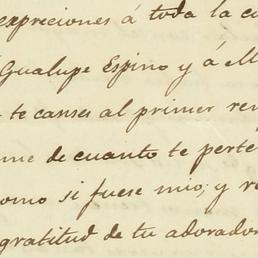 expreciones á toda la ca
Gualupe Espino y á ell
te canses al primer ren
me de cuanto te perte
omo si fuese mio; y r
gratitud de tu adorador